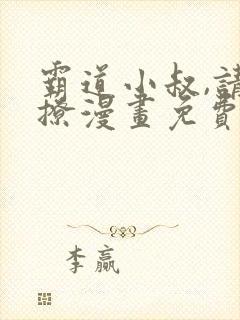 霸道小叔,請
撩漫畫免費
李贏